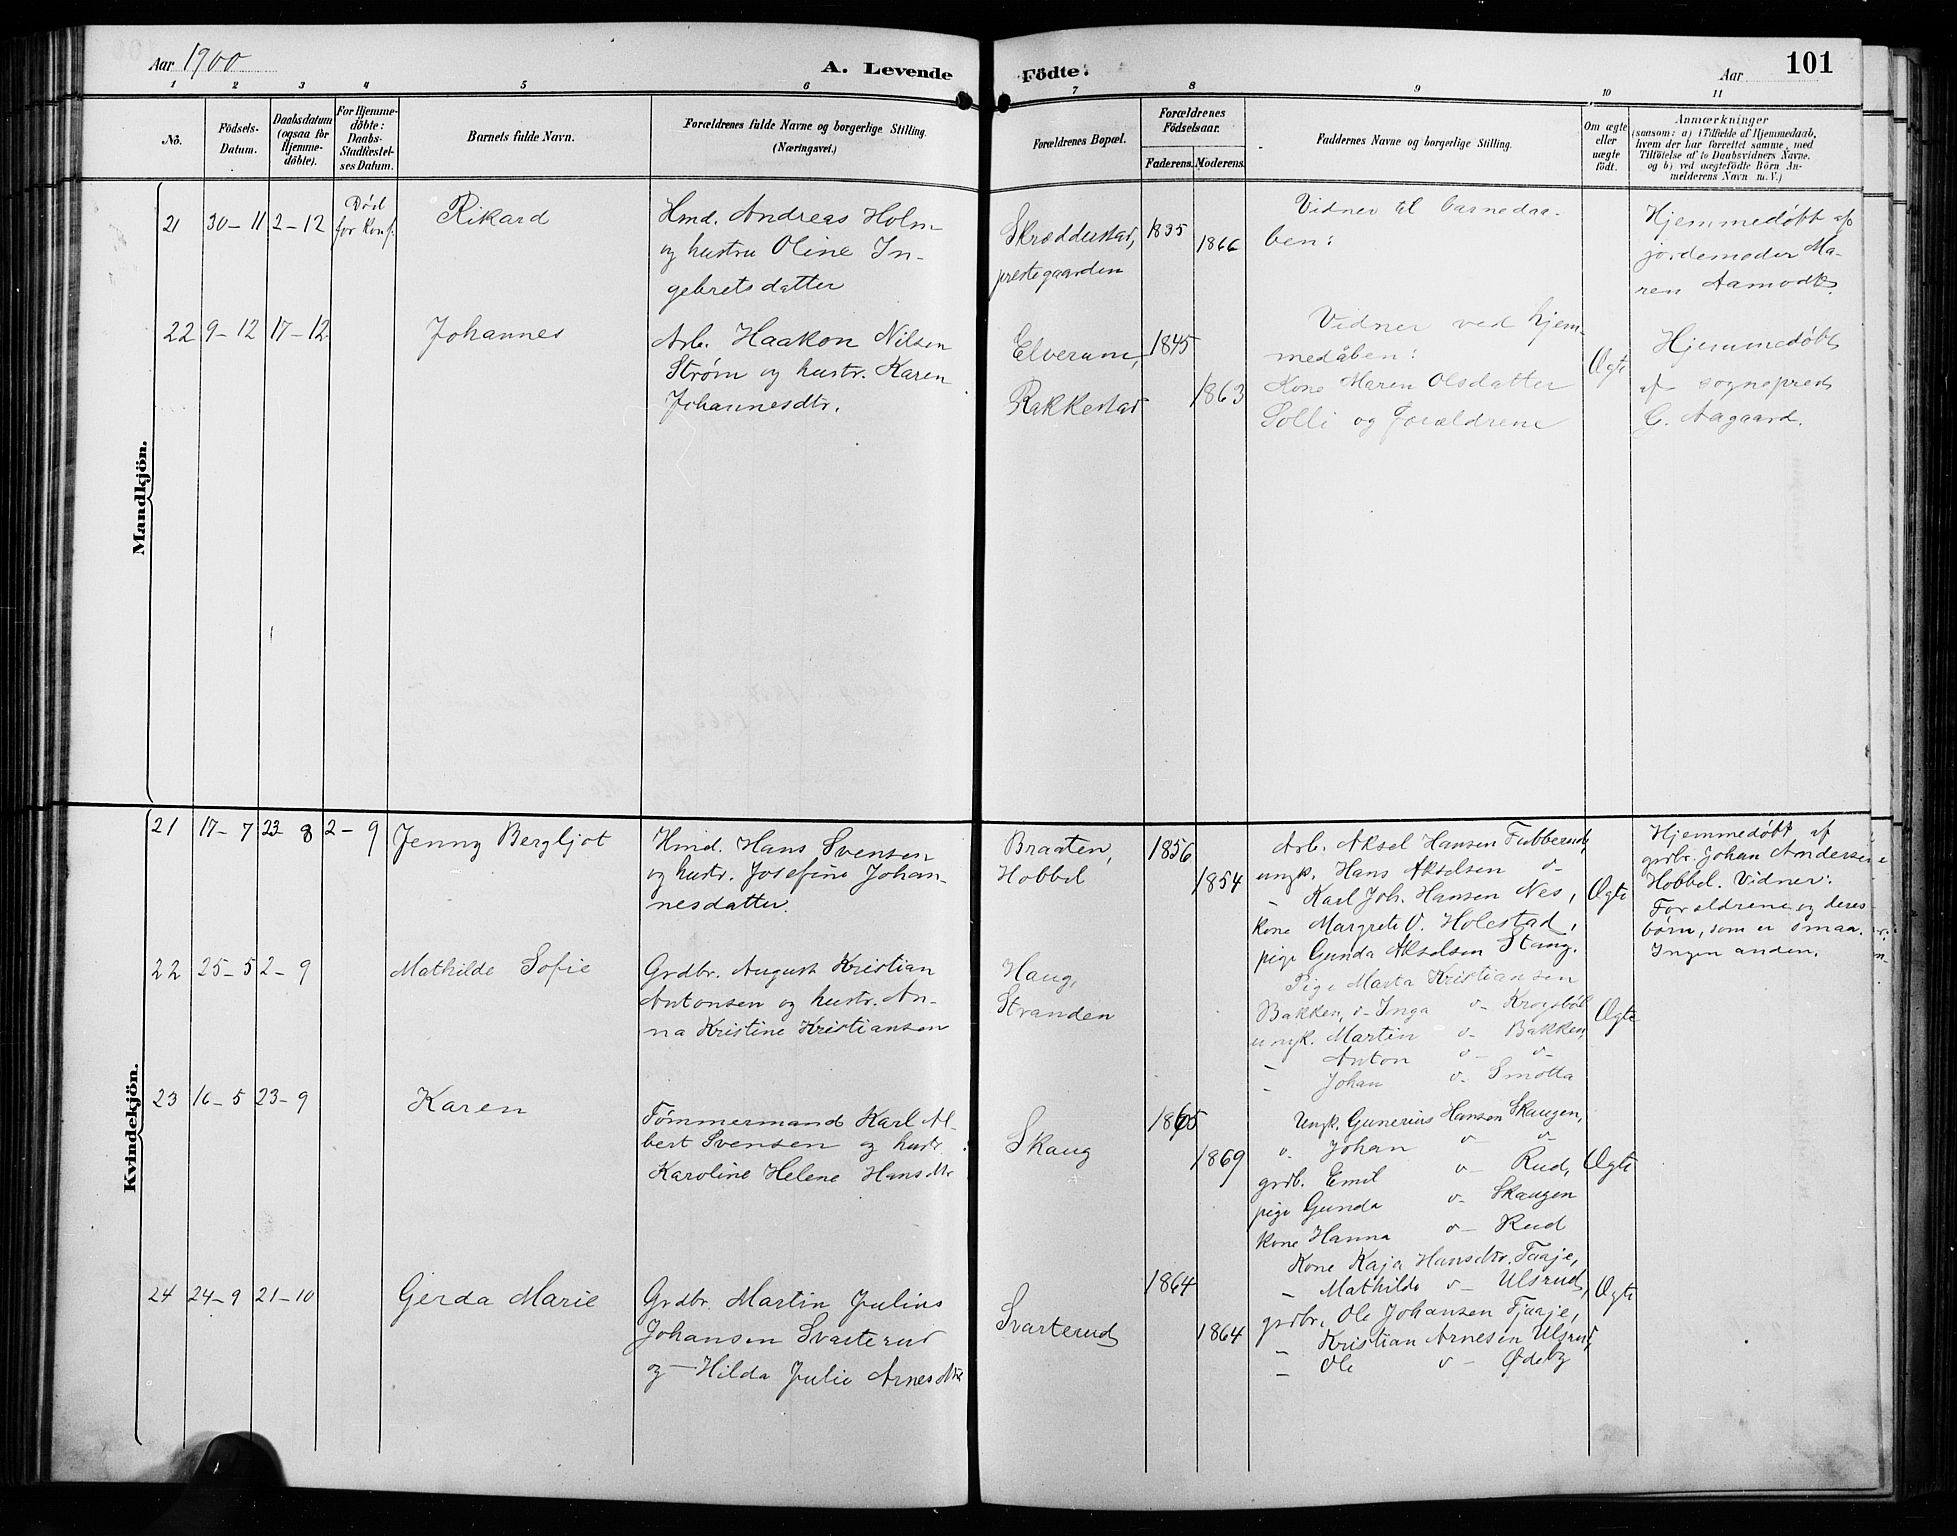 Aar 1900
A. Levende Födte.
Aar
101
1 2 3 4 5 6 7 8 9 10 11
No.
Födsels-
Datum.
Daabsdatum
(ogsaa for
Hjemme-
döbte).
For Hjemme-
döbte:
Daabs-
Stadfæstel-
ses Datum.
Barnets fulde Navn.
Forældrenes fulde Navne og borgerlige Stilling.
(Næringsvei.)
Forældrenes Bopæl.
Forældrenes
Födselsaar.
Faderens. Moderens.
Faddernes Navne og borgerlige Stilling.
Om ægte
eller
uægte
födt.
Anmærkninger
(saasom: a) i Tilfælde af Hjemmedaab,
hvem der har forrettet samme, med
Tilföielse af to Daabsvidners Navne.
og b) ved uægtefödte Börn An-
melderens Navn m. V.)
Mandkjön.
21 30-11 2-12
Død
for Konf.
Rikard
Hmd. Andreas Holm
og hustru Oline In-
gebretsdatter
Skrædderstad,
prestegaarden
1835
1866
Vidner til barnedaa-
ben:
Hjemmedøbt af
jordemoder Ma-
ren Aamodt.
22 9-12 17-12
Johannes
Arb. Haakon Nilsen
Strøm og hustr. Karen
Johannesdtr.
Elverum,
Rakkestad
1845
1863
Vidner ved hjem-
medåben:
Kone Maren Olsdatter
Solli og Forældrene
Ægte
Hjemmedøbt
af sogneprest
G. Aagaard.
Kvindekjön.
21 17-7 23-8 2-9
Jenny Bergljot
Hmd. Hans Svensen
og hustr. Josefine Johan-
nesdatter.
Braaten,
Hobbel
1856
1854
Arb. Aksel Hansen Tubberud,
ungk. Hans Akselsen v-
- Karl Joh. Hansen Nes,
kone Margrete O. Holestad,
pige Gunda Akselsen Stang.
Ægte
Hjemmedøbt af
grdbr. Johan Andersen
Hobbel. Vidner:
Forældrene og deres
børn, som er smaa.
Ingen anden.
22 25-5 2-9
Mathilde Sofie
Grdbr. August Kristian
Antonsen og hustr. An-
na Kristine Kristiansen
Haug,
Stranden
Pige Marta Kristiansen
Bakken, v- Inga v- Krogsbøl
ungk. Martin v- Bakken,
- Anton v- v-
- Johan v- Smotta
Ægte
23 16-5 23-9
Karen
Tømmermand Karl Al-
bert Svensen og hustr
Karoline Helene Hansdtr
Skaug
1865
1869
Ungk. Gunerius Hansen Skaugen,
v. Johan v- v-
grdb. Emil v- Rud,
pige Gunda v- Skaugen
kone Hanna v- Rud
Ægte
24 24-9 21-10
Gerda Marie
Grdbr. Martin Julius
Johansen Svarterud
og - Hilda Julie Arnesdtr
Svarterud
1864
1864
Kone Kaja Hansdtr. Taaje,
- Mathilde v- Ulsrud,
grdbr. Ole Johansen Tjaaje,
- Kristian Arnesen Ulsrud,
- Ole v- Ødeby
Ægte